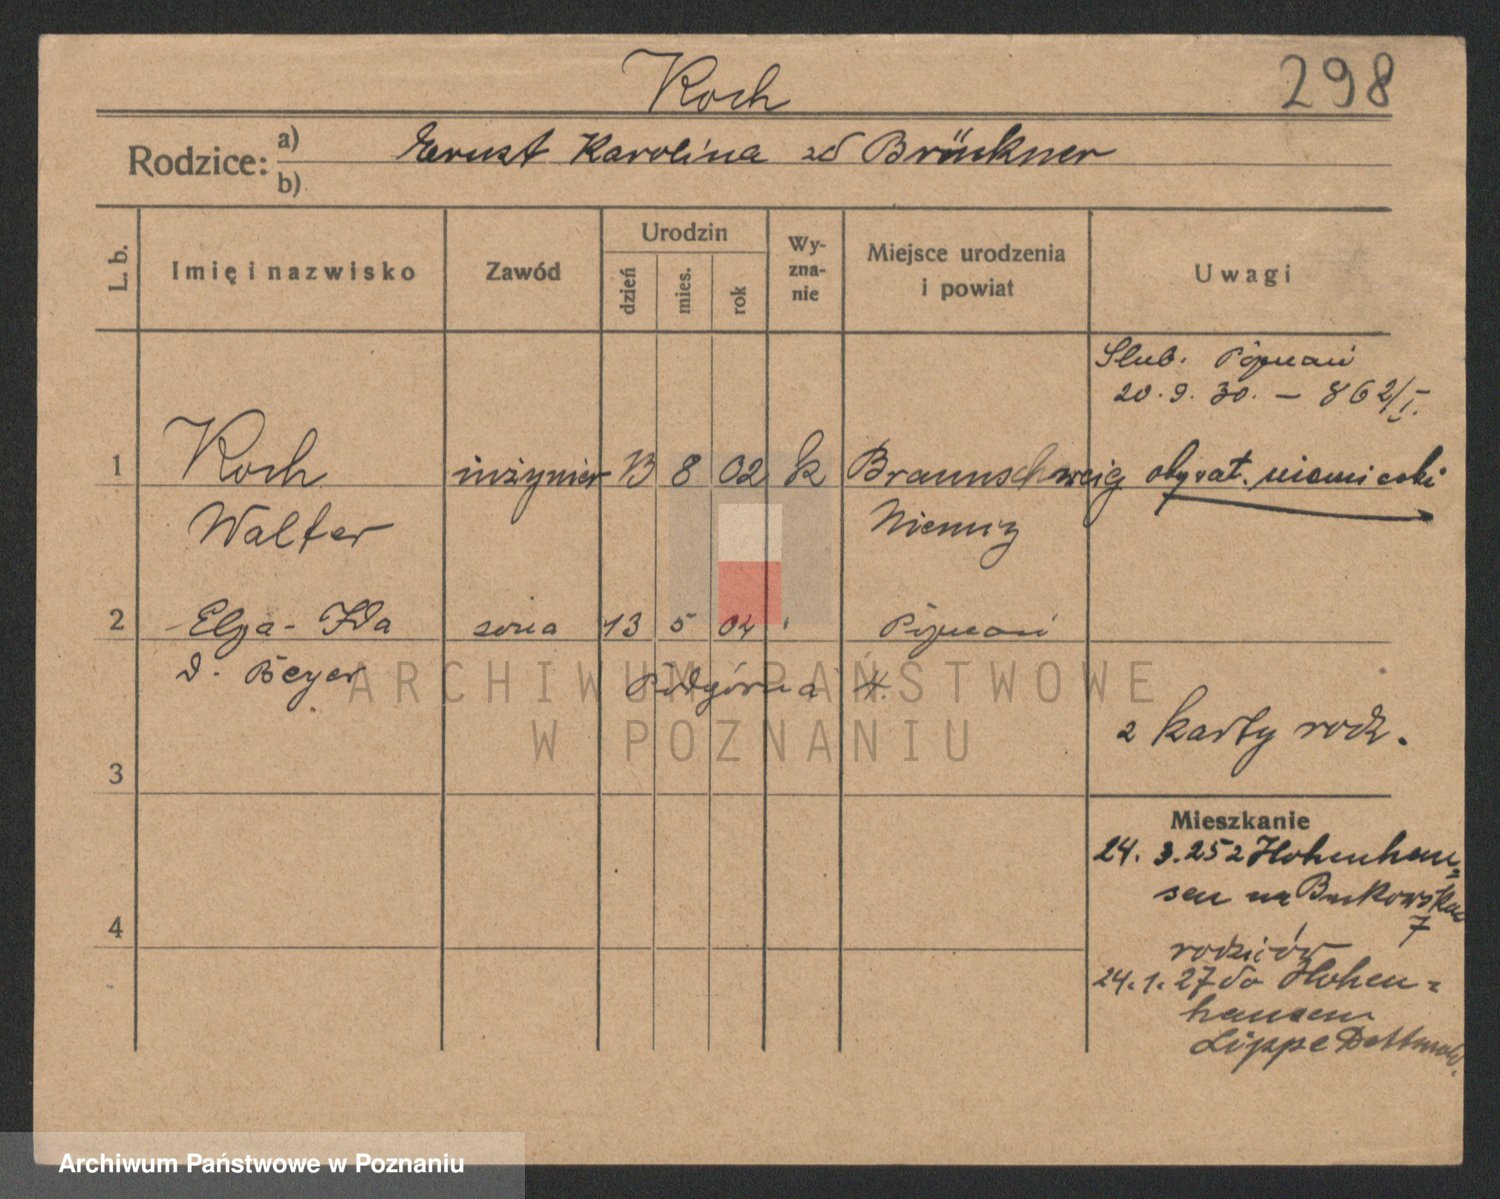 Koch
298
Rodzice: a) Ernst Karolina zd Brückner
b)
L. b.
Imię i nazwisko
Zawód
Urodzin
dzień
mies.
rok
Wy-
zna-
nie
Miejsce urodzenia
i powiat
Uwagi
Ślub. Poznań
20.9.30. — 862/I.
1 Koch inżynier 13 8 02 k Braunschweig obywat. niemiecki
Walter Niemcy
2 Elza - Ida żona 13 5 04 " Poznań
d. Beyer Podgórna
ARCHIWUM PAŃSTWOWE
W POZNANIU
2 karty rodz.
3
Mieszkanie
24. 3. 25 z Hohenhau=
sen na Bukowska
7
4
rodziców
24.1.27 do Hohen=
hausen
Lippe Dettmold.
Archiwum Państwowe w Poznaniu